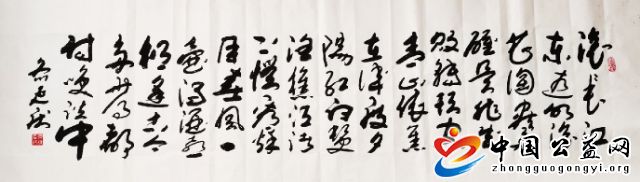 滚滚长江
东逝水浪
花淘尽英
雄是非成
败转头空
青山依旧
在几度夕
阳红白发
渔樵江渚
上惯看秋
月春风一
壶浊酒喜
相逢古今
多少事都
付笑谈中
中国公益网
zhongguogongyi.org